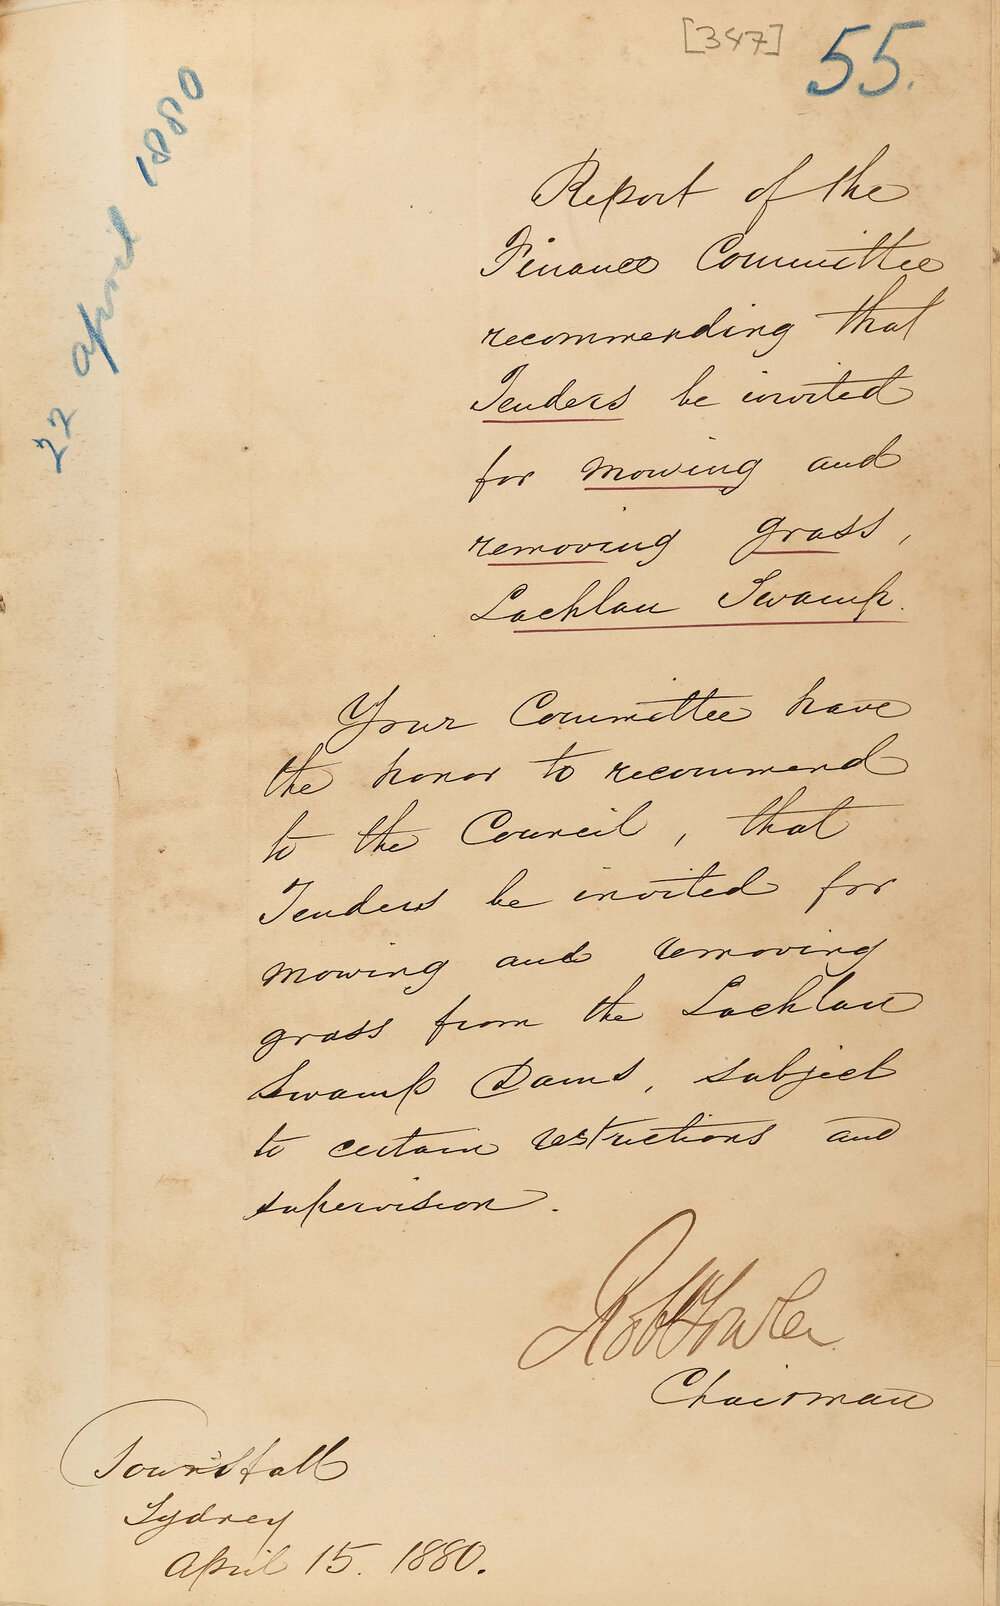 [347] 55.
22 April 1880
Report of the
Finance Committee
recommending that
Tenders be invited
for mowing and
removing grass,
Lachlan Swamp.
Your Committee have
the honor to recommend
to the Council, that
Tenders be invited for
mowing and removing
grass from the Lachlan
Swamp Dams, subject
to certain restrictions and
supervision.
Rob Fowler
Chairman
Town Hall
Sydney
April 15. 1880.